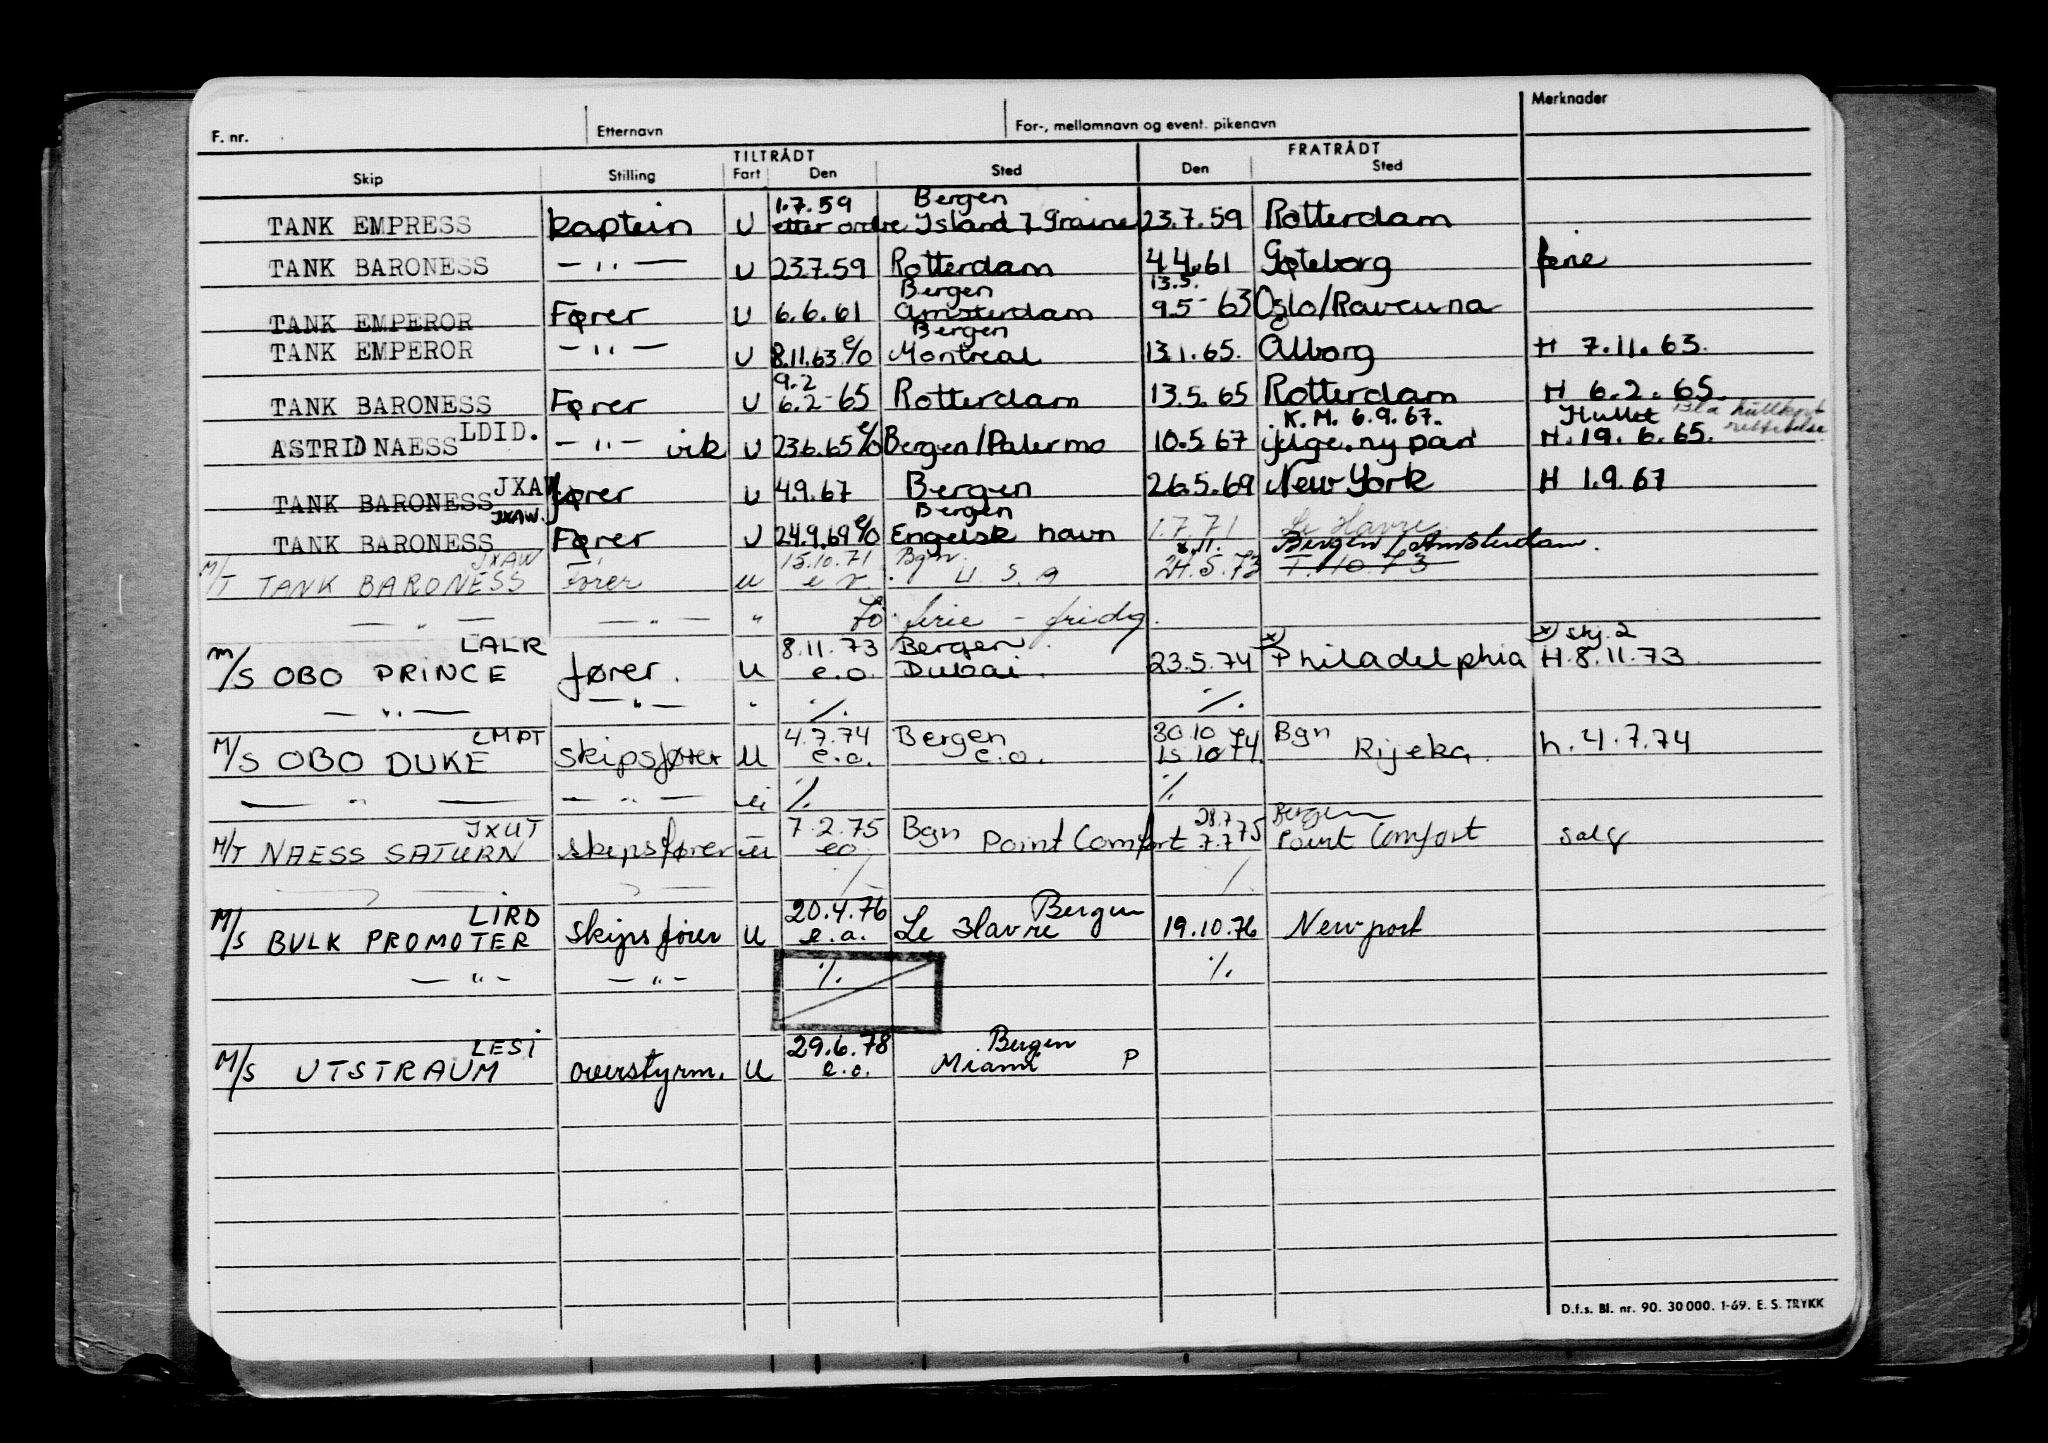 F. nr. Etternavn For-, mellomnavn og event. pikenavn Merknader
TILTRÅDT FRATRÅDT
Skip Stilling Fart Den Sted Den Sted
1.7.59 Bergen
TANK EMPRESS kaptein U etter ordre Island 23.7.59 Rotterdam
TANK BARONESS — " — U 23.7.59 Rotterdam 4.4.61 Gøteborg ferie
Bergen 13.5.
TANK EMPEROR Fører U 6.6.61 Amsterdam 9.5 - 63 Oslo/Ravenna
Bergen
TANK EMPEROR — " — U 8.11.63 e/o Montreal 13.1.65. Ålborg H 7.11.63.
9.2
TANK BARONESS Fører U 6.2 - 65 Rotterdam 13.5.65 Rotterdam H 6.2.65.
K.M. 6.9.67. Hullet Blå hullkort
ASTRID NAESS LDID. — " — vik U 23.6.65 e/o Bergen/Palermo 10.5.67 H. 19.6.65.
TANK BARONESS JXAW fører U 4.9.67 Bergen 26.5.69 New York H 1.9.67
JXAW. Bergen
TANK BARONESS Fører U 24.9.69 e/o Engelsk havn 1.7.71 Le Havre
JXAW 15.10.71 Bgn. 8.11. Bergen/Amsterdam.
M/T TANK BARONESS Fører u U.S.A 24.5.73 1.10.73
— " — — " — " ferie - fridg.
LALR 8.11.73 Bergen x) x) skj. 2
M/S OBO PRINCE fører. U e.o. Dubai. 23.5.74 Philadelphia H. 8.11.73
— " — — " — " ./. ./.
LMPT 4.7.74 Bergen 30.10 Bgn
M/S OBO DUKE skipsfører U e.o. e.o. 15.10.74. Rijeka. h. 4.7.74
— " — — " — ./. ./.
JXUT 7.2.75 Bgn 28.7 Bergen
M/T NAESS SATURN skipsfører u eo Point Comfort 7.7 75 Point Comfort salg
./. ./.
LIRD 20.4.76 Bergen
M/S BULK PROMOTER Skipsfører U e.o. Le Havre 19.10.76 Newport
— " — — " — ./. ./.
LESI 29.6.78 Bergen
M/S UTSTRAUM overstyrm. U e.o. Miami P
D.f.s. Bl. nr. 90. 30 000. 1-69. E. S. TRYKK